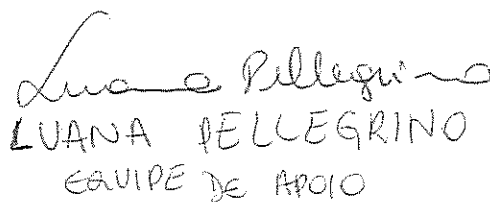 Luana Pellegrino
LUANA PELLEGRINO
EQUIPE DE APOIO